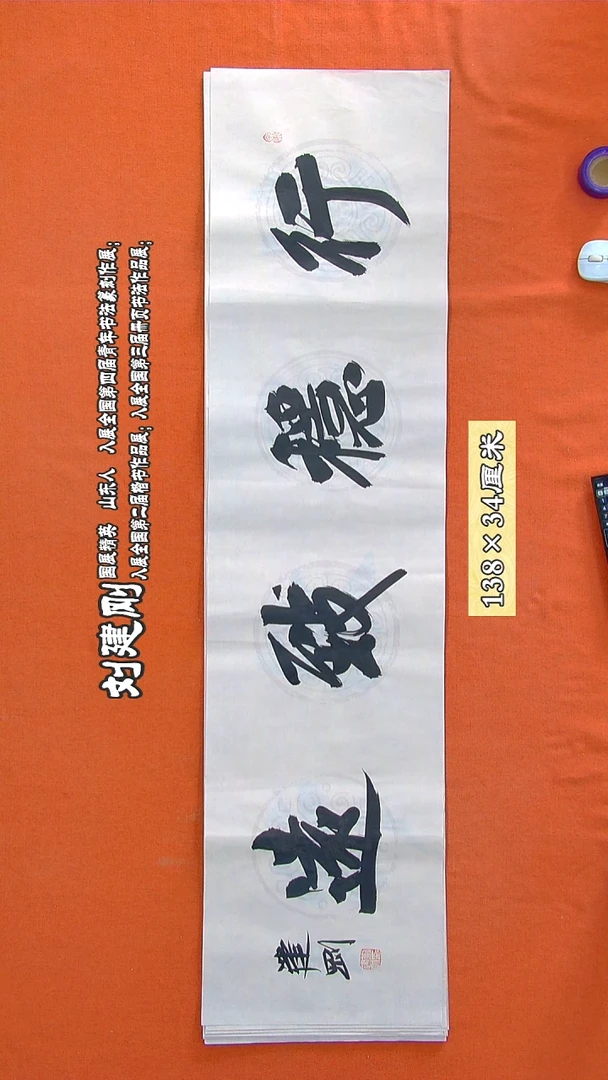 刘建刚
国展精英 山东人 入展全国第四届青年书法篆刻作展;
入展全国第二届楷书作品展; 入展全国第三届册页书法作品展;
行穩致遠
建剛
138×34厘米